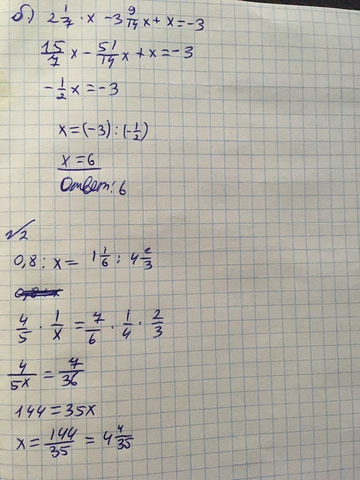 б) 2 1/7 · x - 3 9/14 x + x = -3
15/7 x - 51/14 x + x = -3
- 1/2 x = -3
x = (-3) : (- 1/2)
x = 6
Ответ: 6
√2
0,8 : x = 1 1/6 : 4 2/3
4/5 · 1/x = 7/6 · 1/4 · 2/3
4/5x = 7/36
144 = 35x
x = 144/35 = 4 4/35